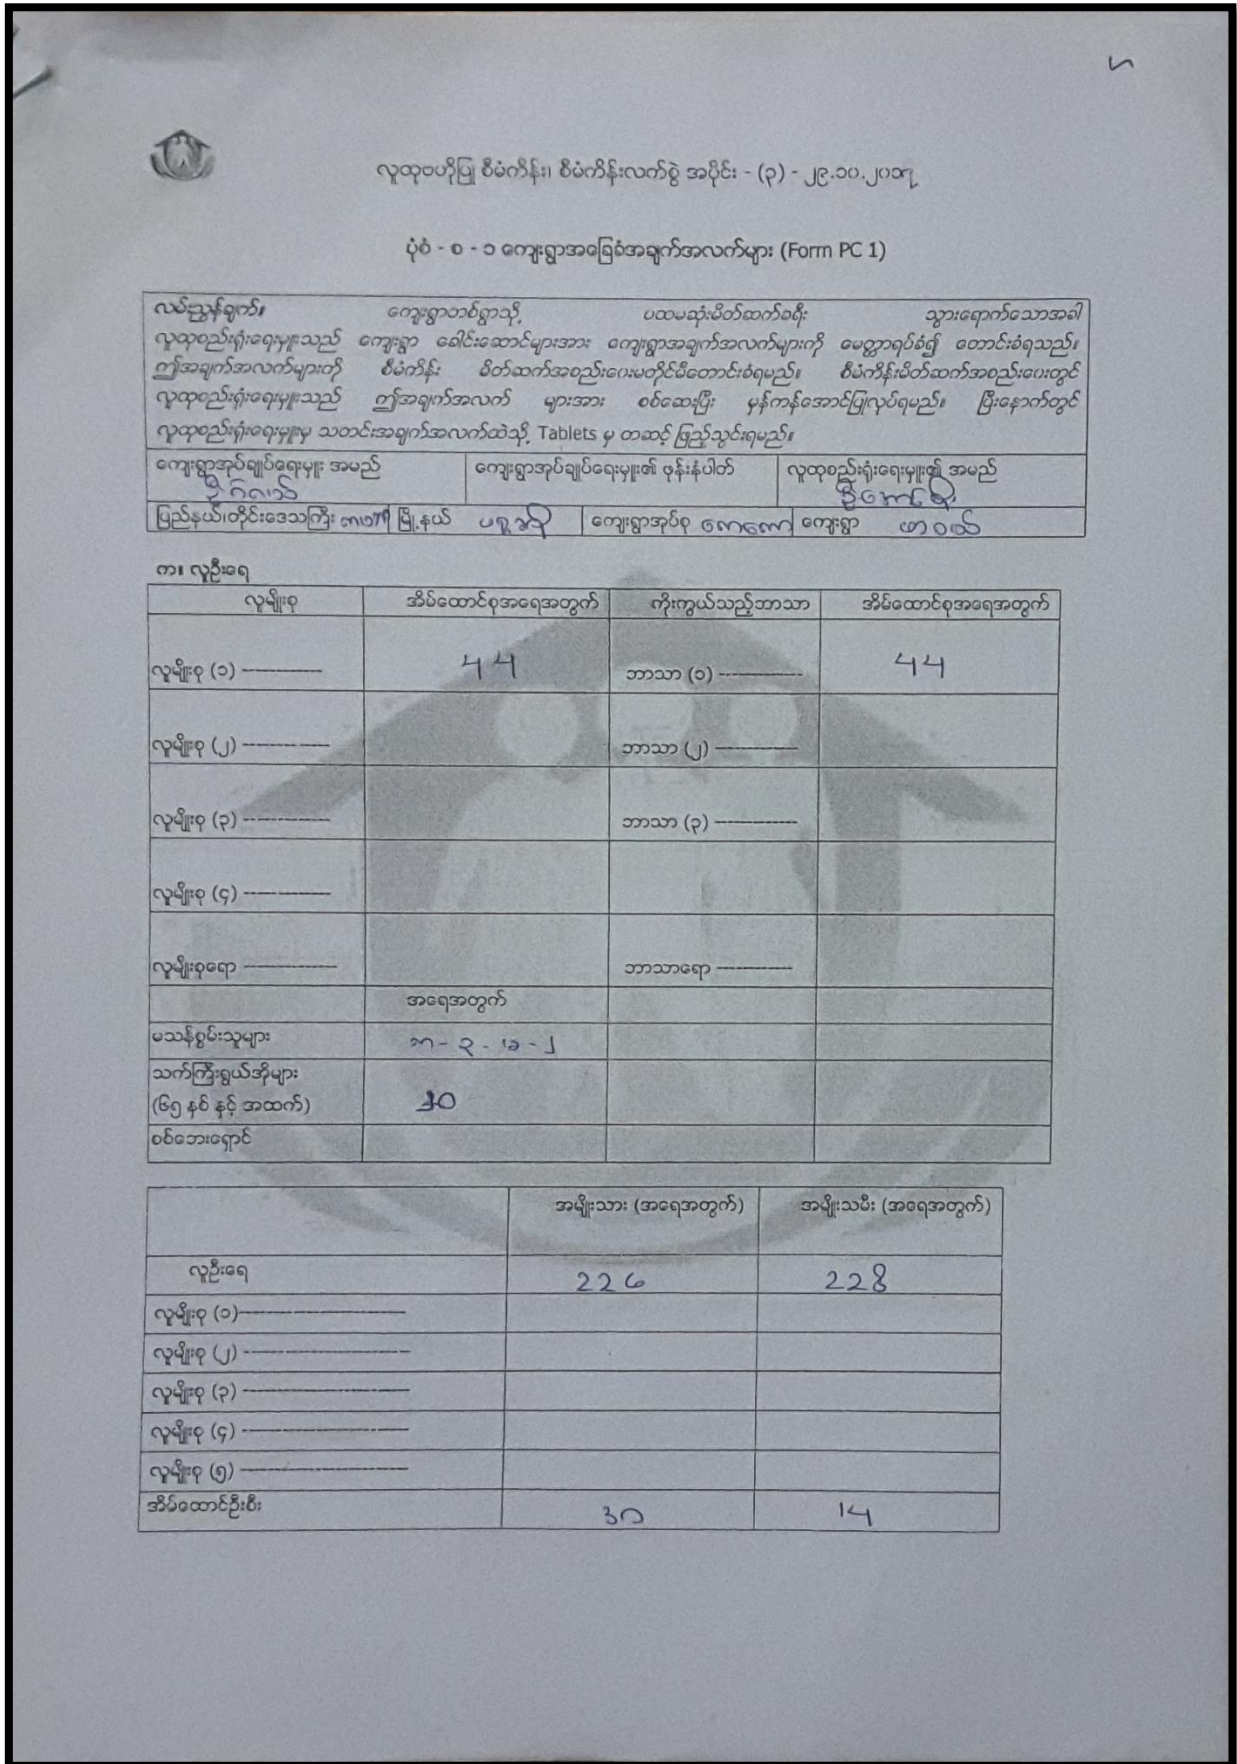 လူထုဗဟိုပြု စီမံကိန်း၊ စီမံကိန်းလက်စွဲ အပိုင်း - (၃) - ၂၉.၁၀.၂၀၁၇
ပုံစံ - စ - ၁ ကျေးရွာအခြေခံအချက်အလက်များ (Form PC 1)
လမ်းညွှန်ချက်။ ကျေးရွာတစ်ရွာသို့ ပထမဆုံးမိတ်ဆက်ခရီး သွားရောက်သောအခါ
လူထုစည်းရုံးရေးမှူးသည် ကျေးရွာ ခေါင်းဆောင်များအား ကျေးရွာအချက်အလက်များကို မေတ္တာရပ်ခံ၍ တောင်းခံရသည်။
ဤအချက်အလက်များကို စီမံကိန်း မိတ်ဆက်အစည်းဝေးမတိုင်မီတောင်းခံရမည်။ စီမံကိန်းမိတ်ဆက်အစည်းဝေးတွင်
လူထုစည်းရုံးရေးမှူးသည် ဤအချက်အလက် များအား စစ်ဆေးပြီး မှန်ကန်အောင်ပြုလုပ်ရမည်။ ပြီးနောက်တွင်
လူထုစည်းရုံးရေးမှူးမှ သတင်းအချက်အလက်ထဲသို့ Tablets မှ တဆင့် ဖြည့်သွင်းရမည်။
ကျေးရွာအုပ်ချုပ်ရေးမှူး အမည် ကျေးရွာအုပ်ချုပ်ရေးမှူး၏ ဖုန်းနံပါတ် လူထုစည်းရုံးရေးမှူး၏ အမည်
ပြည်နယ်၊တိုင်းဒေသကြီး မြို့နယ် ကျေးရွာအုပ်စု ကျေးရွာ
က။ လူဦးရေ
လူမျိုးစု အိမ်ထောင်စုအရေအတွက် ကိုးကွယ်သည့်ဘာသာ အိမ်ထောင်စုအရေအတွက်
လူမျိုးစု (၁) ------------ 44 ဘာသာ (၁) ------------ 44
လူမျိုးစု (၂) ------------ ဘာသာ (၂) ------------
လူမျိုးစု (၃) ------------ ဘာသာ (၃) ------------
လူမျိုးစု (၄) ------------
လူမျိုးစုရော ------------ ဘာသာရော ------------
အရေအတွက်
မသန်စွမ်းသူများ
သက်ကြီးရွယ်အိုများ
(၆၅ နှစ် နှင့် အထက်)
စစ်ဘေးရှောင်
အမျိုးသား (အရေအတွက်) အမျိုးသမီး (အရေအတွက်)
လူဦးရေ 226 228
လူမျိုးစု (၁)------------------------
လူမျိုးစု (၂) ------------------------
လူမျိုးစု (၃) ------------------------
လူမျိုးစု (၄) ------------------------
လူမျိုးစု (၅) ------------------------
အိမ်ထောင်ဦးစီး 30 14